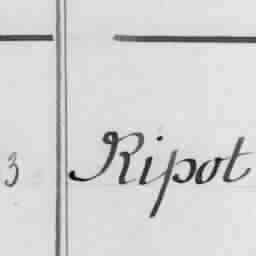 3 Ripot